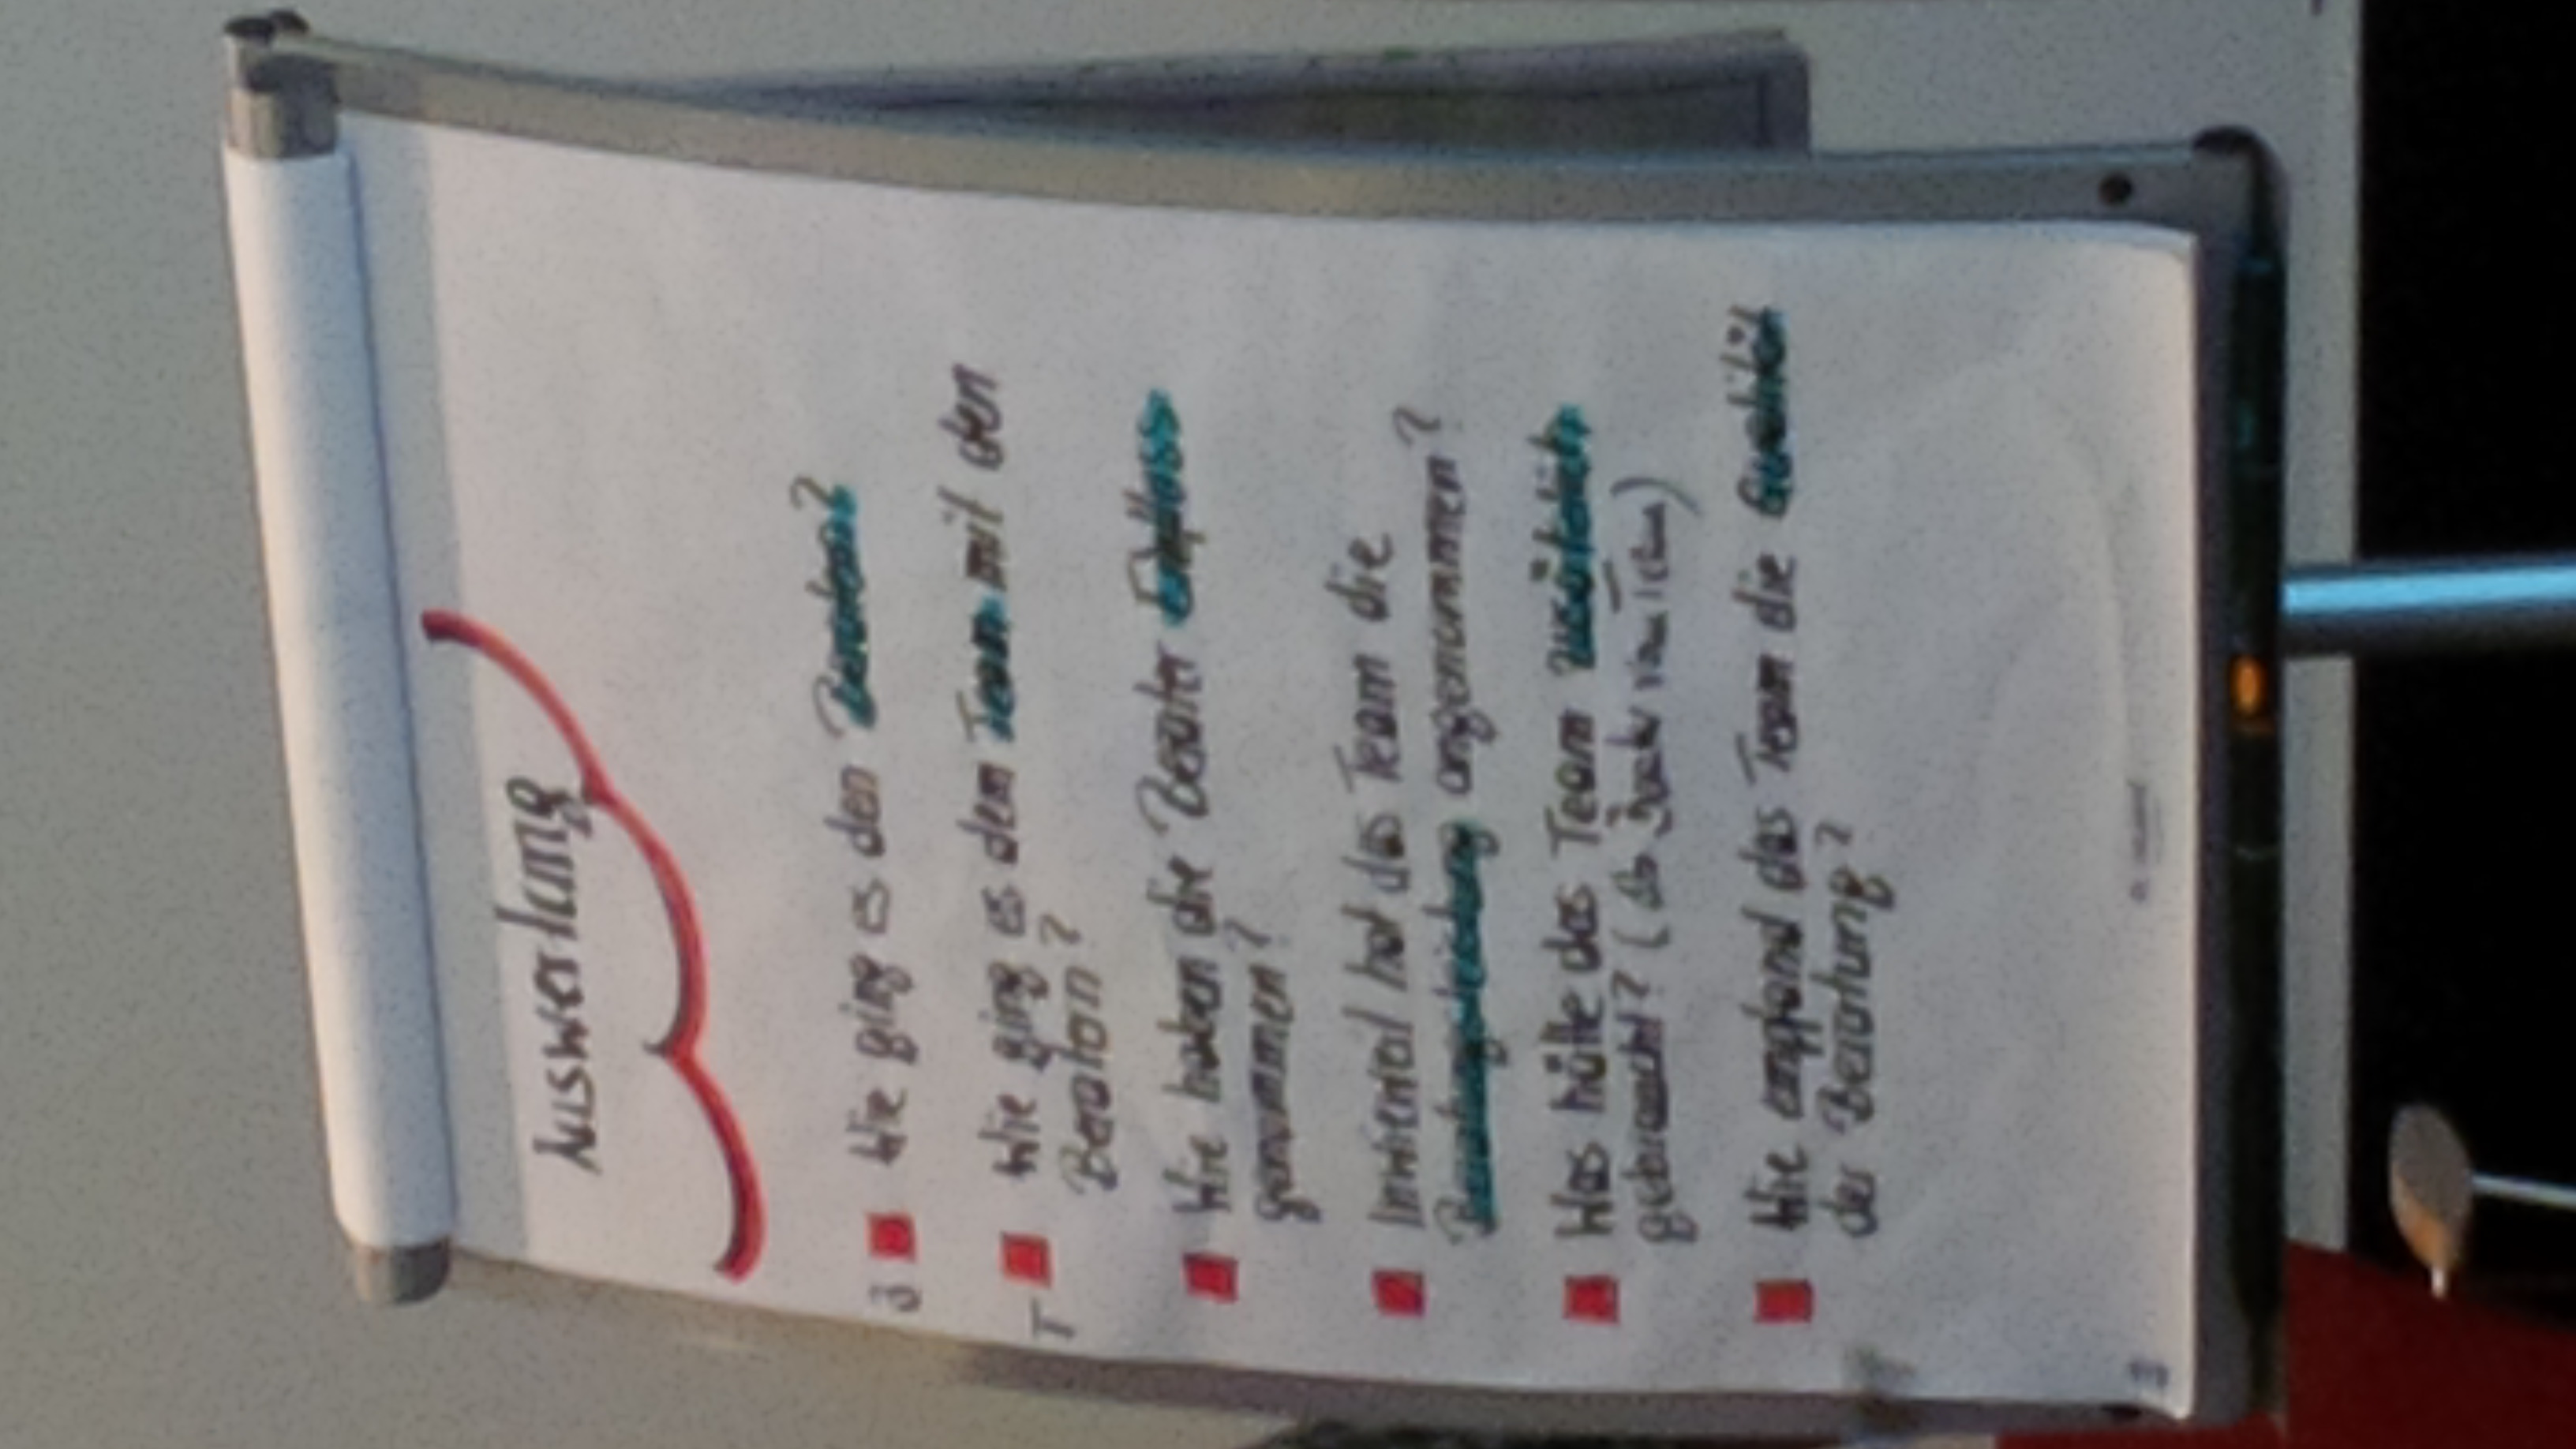 Auswertung
B Wie ging es den Beratern?
T Wie ging es dem Team mit den
Beratern?
Wie haben die Berater Einfluss
genommen?
Inwieweit hat das Team die
angenommen?
Was hätte das Team zusätzlich
gebraucht? (als
Wie empfand das Team die Qualität
der Beratung?